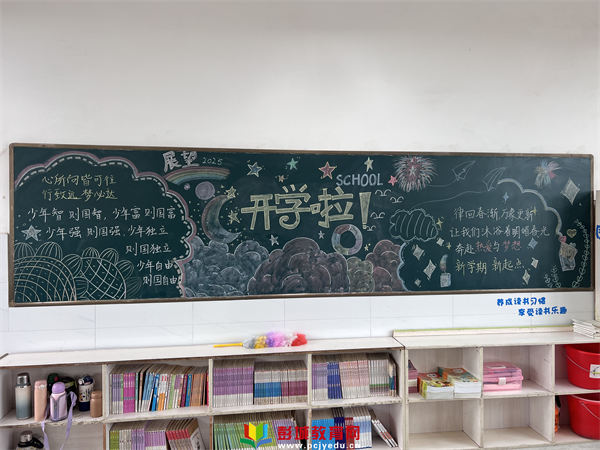 心所向皆可往
行致远 梦必达
少年智 则国智, 少年富 则国富
少年强 则国强, 少年独立
则国独立
少年自由
则国自由
展望 2025
开学啦!
SCHOOL
律回春渐 万象更新
让我们沐浴着明媚春光
奔赴热爱与梦想
新学期 新起点
养成读书习惯
享受读书乐趣
彭城教育网
www.pcjyedu.cn